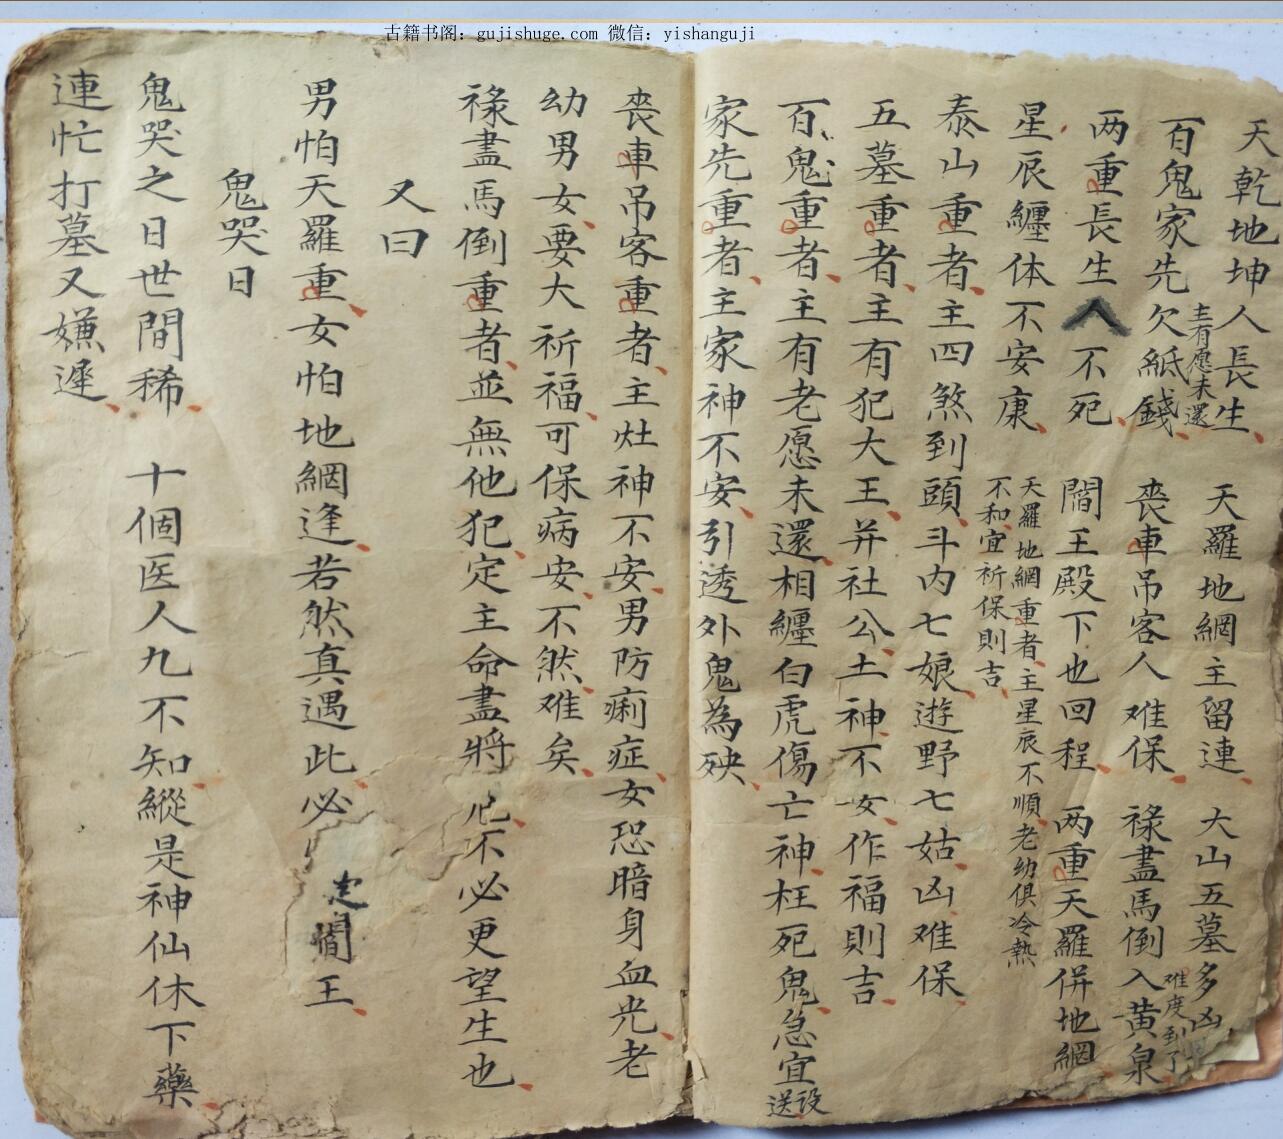 古籍书阁：gujishuge.com 微信：yishanguji
天乾地坤人長生 天羅地網主留連 大山五墓多凶
主有愿未還
百鬼家先欠紙錢 喪車吊客人难保 祿盡馬倒入黄泉
难度到了
两重長生人不死 閻王殿下也回程 两重天羅併地網
天羅地網重者主星辰不順老幼俱冷熱
不和宜祈保則吉
星辰纒体不安康
泰山重者主四煞到頭斗内七娘遊野七姑凶难保
五墓重者主有犯大王并社公土神不安作福則吉
百鬼重者主有老愿未還相纒白虎傷亡神枉死鬼急宜設送
家先重者主家神不安引透外鬼為殃
喪車吊客重者主灶神不安男防痢症女恐暗身血光老
幼男女要大祈福可保病安不然难矣
祿盡馬倒重者並無他犯定主命盡將危不必更望生也
又曰
男怕天羅重女怕地網逢若然真遇此必定見閻王
鬼哭日
鬼哭之日世間稀 十個医人九不知縱是神仙休下藥
連忙打墓又嫌遲